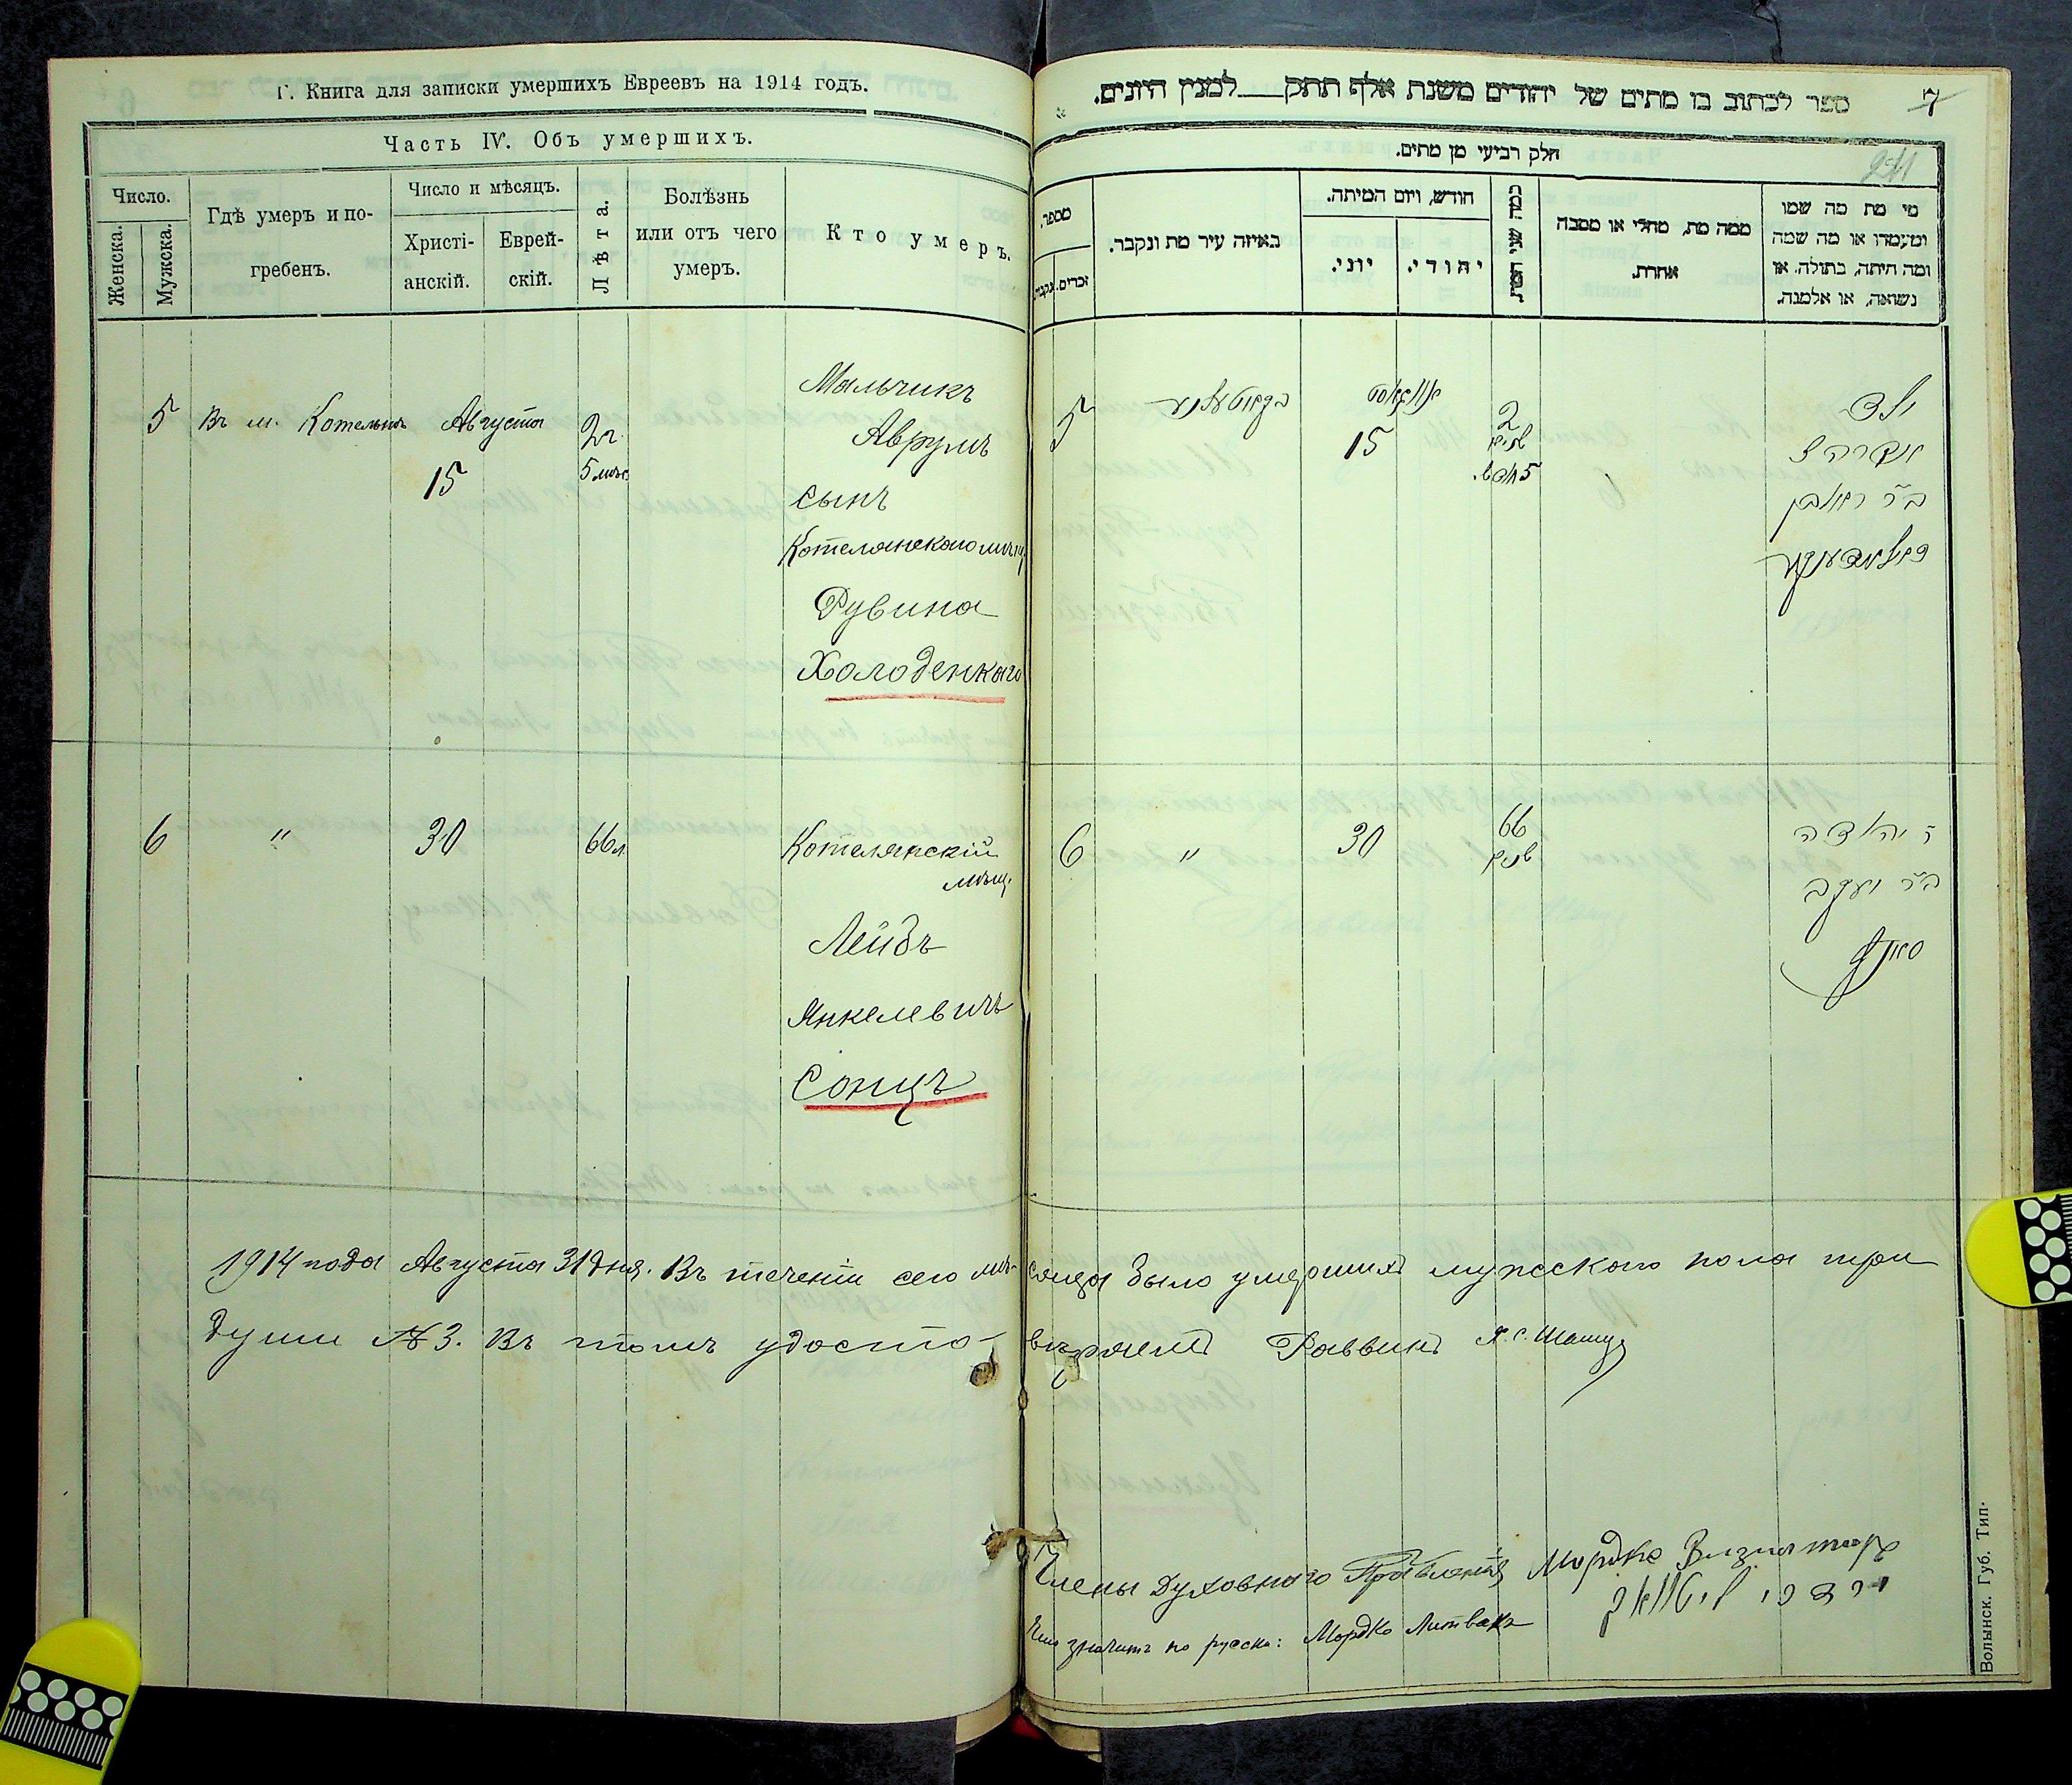 Г. Книга для записки умершихъ Евреевъ на 1914 годъ.
Часть IV. Объ умершихъ.
Число.
Женска.
Мужска.
Гдѣ умеръ и по-
гребенъ.
Число и мѣсяцъ.
Христі-
анскій.
Еврей-
скій.
Лѣта.
Болѣзнь
или отъ чего
умеръ.
Кто умеръ.
5
Въ м. Котельнѣ
Августа
15
2г.
5 мѣс
Мальчикъ
Аврумъ
сынъ
Котелянскаго мѣщ.
Рувина
Холоденкаго
6
"
30
66 л
Котелянскій
мѣщ.
Лейбъ
Янкелевичъ
Сонцъ
ספר לכתוב בו מתים של יהודים משנת אלף תתק למנין היונים.
7
241
חלק רביעי מן מתים.
מספר.
זכרים.
נקבות.
באיזה עיר מת ונקבר.
חודש, ויום המיתה.
יוני.
יהודי.
כמה שני המת.
ממה מת, מחלי או מסבה
אחרת.
מי מת מה שמו
ומעמדו או מה שמה
ומה היתה, בתולה, או
נשואה, או אלמנה.
5
אווגוסט
15
2
שנים
5 חדש.
ילד
אברהם
ב״ר ראובן
6
"
30
66
שנים
ר׳ יהודה
ב״ר יעקב
1914 года Августа 31 дня. Въ теченіи сего мѣ-сяца было умершихъ мужскаго пола три
души № 3. Въ томъ удосто-вѣряетъ Раввинъ
Члены Духовнаго Правленія Мордко
מרדכי ליטוואק
Что значитъ по русски: Мордко Литвакъ
Волынск. Губ. Тип.